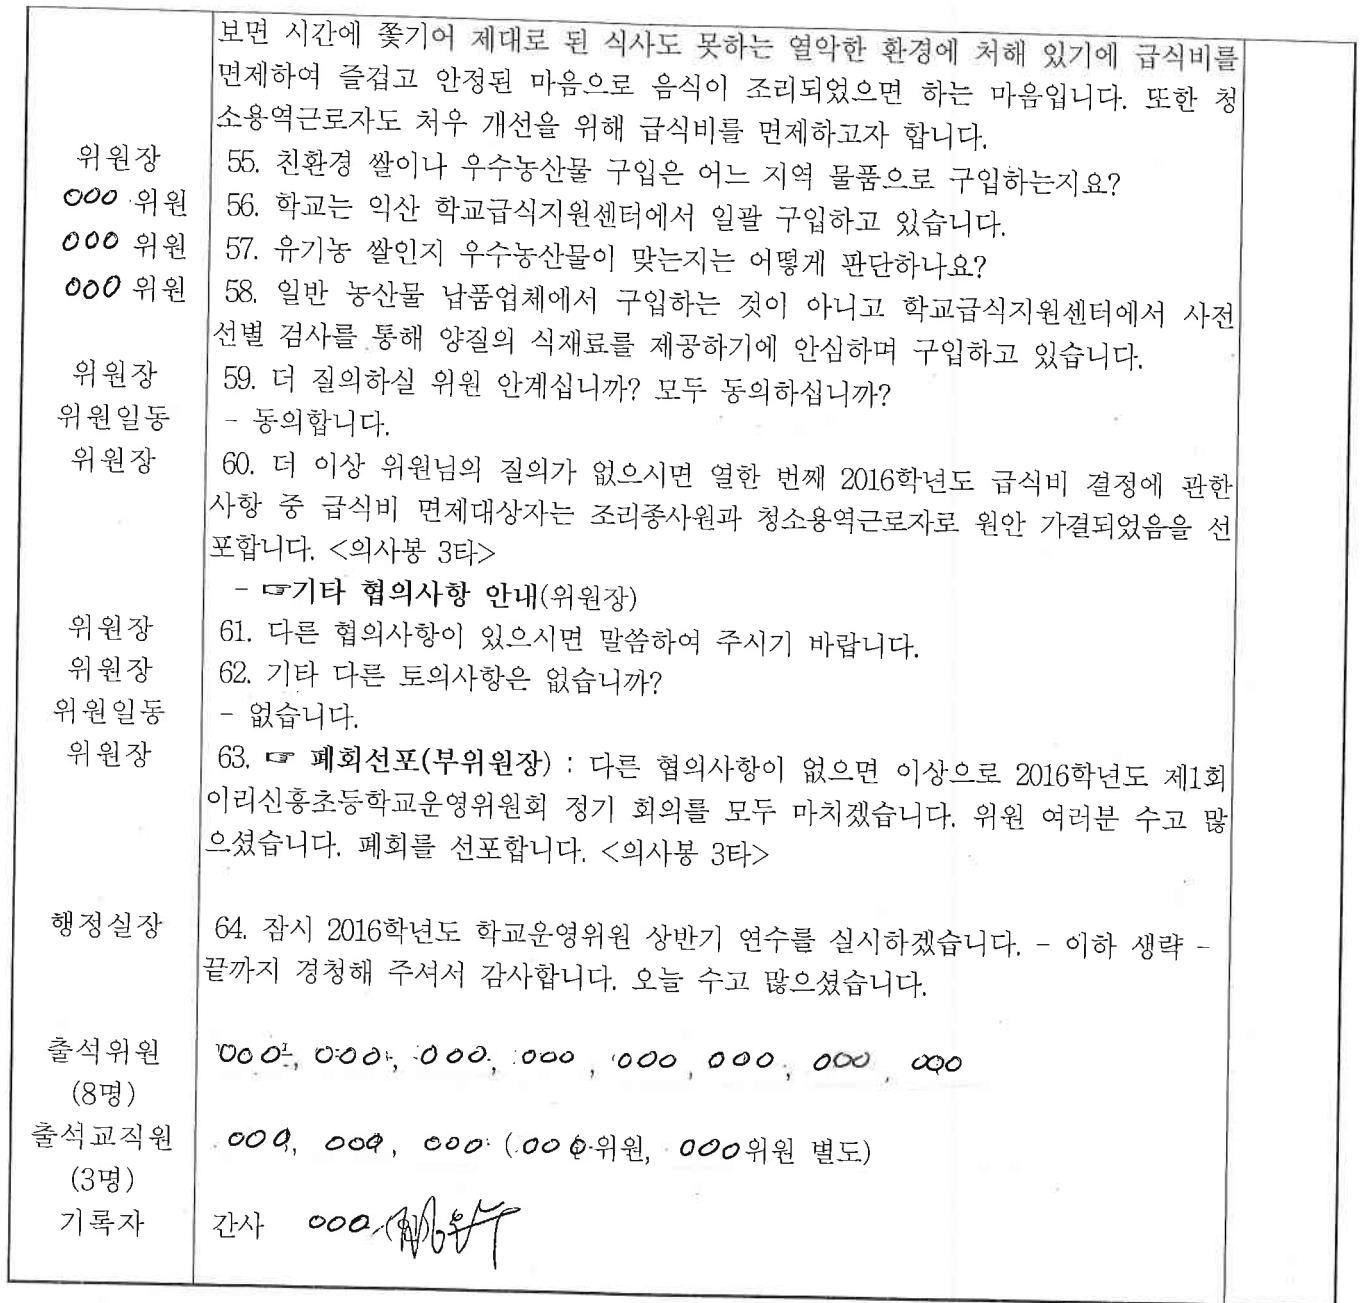 보면 시간에 쫓기어 제대로 된 식사도 못하는 열악한 환경에 처해 있기에 급식비를
면제하여 즐겁고 안정된 마음으로 음식이 조리되었으면 하는 마음입니다. 또한 청
소용역근로자도 처우 개선을 위해 급식비를 면제하고자 합니다.
위원장 55. 친환경 쌀이나 우수농산물 구입은 어느 지역 물품으로 구입하는지요?
000 위원 56. 학교는 익산 학교급식지원센터에서 일괄 구입하고 있습니다.
000 위원 57. 유기농 쌀인지 우수농산물이 맞는지는 어떻게 판단하나요?
000 위원 58. 일반 농산물 납품업체에서 구입하는 것이 아니고 학교급식지원센터에서 사전
선별 검사를 통해 양질의 식재료를 제공하기에 안심하며 구입하고 있습니다.
위원장 59. 더 질의하실 위원 안계십니까? 모두 동의하십니까?
위원일동 - 동의합니다.
위원장 60. 더 이상 위원님의 질의가 없으시면 열한 번째 2016학년도 급식비 결정에 관한
사항 중 급식비 면제대상자는 조리종사원과 청소용역근로자로 원안 가결되었음을 선
포합니다. <의사봉 3타>
- ☞기타 협의사항 안내(위원장)
위원장 61. 다른 협의사항이 있으시면 말씀하여 주시기 바랍니다.
위원장 62. 기타 다른 토의사항은 없습니까?
위원일동 - 없습니다.
위원장 63. ☞ 폐회선포(부위원장) : 다른 협의사항이 없으면 이상으로 2016학년도 제1회
이리신흥초등학교운영위원회 정기 회의를 모두 마치겠습니다. 위원 여러분 수고 많
으셨습니다. 폐회를 선포합니다. <의사봉 3타>
행정실장 64. 잠시 2016학년도 학교운영위원 상반기 연수를 실시하겠습니다. - 이하 생략 -
끝까지 경청해 주셔서 감사합니다. 오늘 수고 많으셨습니다.
출석위원 000, 000, 000, 000, 000, 000, 000, 000
(8명)
출석교직원 000, 000, 000 (000위원, 000위원 별도)
(3명)
기록자 간사 000